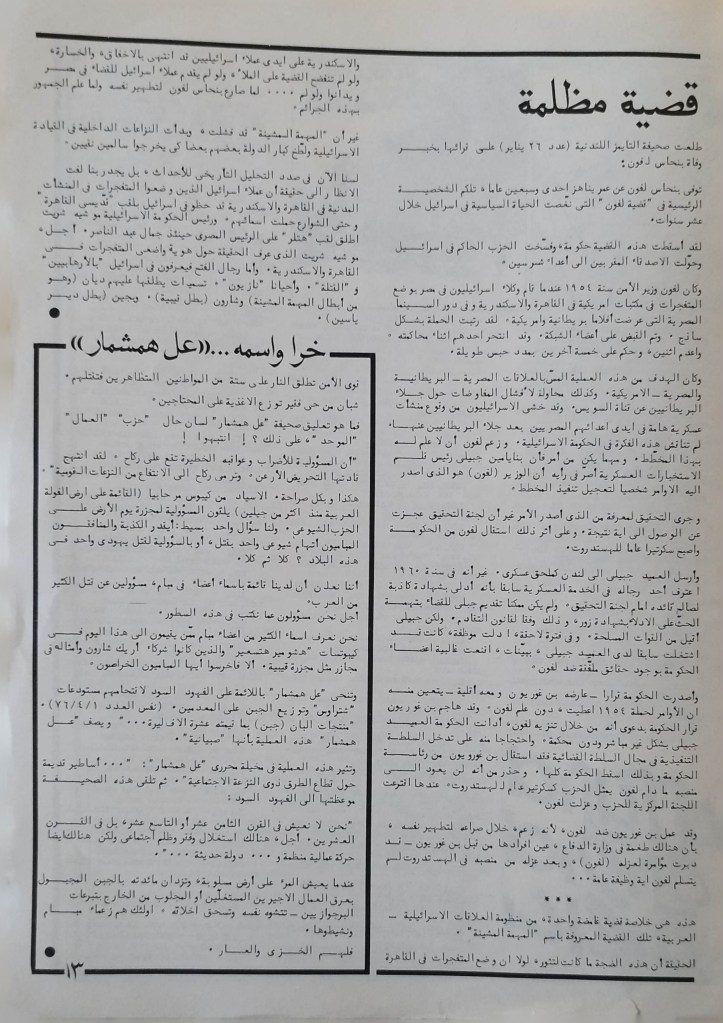 قضية مظلمة
طلعت صحيفة التايمز اللندنية (عدد ٢٦ يناير) على قرائها بخبر
وفاة بنحاس لافون :
توفى بنحاس لغون عن عمر يناهز احدى وسبعين عاما، تلكم الشخصية
الرئيسية فى "قضية لغون" التى نغّصت الحياة السياسية فى اسرائيل خلال
عشر سنوات .
لقد أسقطت هذه القضية حكومة، وفسّخت الحزب الحاكم فى اسرائيل
وحوّلت الاصدقاء المقربين الى أعداء شرسين .
وكان لغون وزير الأمن سنة ١٩٥٤ عندما قام وكلاء اسرائيليون فى مصر بوضع
المتفجرات فى مكتبات امريكية فى القاهرة والاسكندرية و فى دور السينما
المصرية التى عرضت أفلاما بريطانية وامريكية . لقد رتبت الحملة بشكل
ساذج . وتم القبض على أعضاء الشبكة، وقد انتحر احدهم اثناء محاكمته،
واعدم اثنين، وحكم على خمسة آخرين بمدد حبس طويلة .
وكان الهدف من هذه العملية المسّ بالعلاقات المصرية ــ البريطانية
والمصرية ــ الامريكية . وكذلك محاولة لافشال المفاوضات حول جلاء
البريطانيين عن قناة السويس . وقد خشى الاسرائيليون من وقوع منشآت
عسكرية هامة فى ايدى اعدائهم المصريين بعد جلاء البريطانيين عنها .
لم تناقش هذه الفكرة فى الحكومة الاسرائيلية . و زعم لغون أن لا علم له
بهذا المخطّط . ومهما يكن من أمر فأن بنيامين جبيلى رئيس قلم
الاستخبارات العسكرية أصرّ فى رأيه أن الوزير (لغون) هو الذى اصدر
اليه الاوامر شخصيا لتعجيل تنفيذ المخطط .
و جرى التحقيق لمعرفة من الذى أصدر الأمر غير أن لجنة التحقيق عجزت
عن الوصول الى اية نتيجة . وعلى أثر ذلك استقال لغون من الحكومة
واصبح سكرتيرا عاما للهستدروت .
وأرسل العميد جبيلى الى لندن كملحق عسكرى . غير أنه فى سنة ١٩٦٠
اعترف أحد رجاله فى الخدمة العسكرية سابقا بأنه أدلى بشهادة كاذبة
لصالح قائده امام لجنة التحقيق . ولم يكن ممكنا تقديم جبلى للقضاء بتهمة
الحثّ على الادلاء بشهادة زور، و ذلك وفقا لقانون التقادم . ولكن جبيلى
أقيل من القوات المسلحة . و فى فترة لاحقة، ادلت موظفة، كانت قد
اشتغلت سابقا لدى العميد جبيلى، ببيّنات، اقنعت غالبية اعضاء
الحكومة بوجود حقائق ملفّقة ضد لغون .
وأصدرت الحكومة قرارا ــ عارضه بن غوريون ومعه أقلية ــ يتعين منه
أن الأوامر لحملة ١٩٥٤ اعطيت، دون علم لغون . وقد هاجم بن غوريون
قرار الحكومة بدعوى أنه من خلال تنزيه لغون، أدانت الحكومة العميد
جبيلى بشكل غير مباشر ودون محكمة، واحتجاجا منه على تدخل السلطة
التنفيذية فى مجال السلطة القضائية فقد استقال بن غوريون من رئاسة
الحكومة و بذلك اسقط الحكومة كلها . وحذر من أنه لن يعود الى
منصبه ما دام لغون يمثل الحزب كسكرتير عام للهستدروت، عندها اقترعت
اللجنة المركزية للحزب و عزلت لغون .
وقد عمل بن غوريون ضد لغون، لأنه زعم، خلال صراعه لتطهير نفسه،
بأن هنالك طغمة فى وزارة الدفاع، عين افرادها من قبل بن غوريون ــ قد
دبرت مؤامرة لعزله (لغون)، وبعد عزله من منصبه فى الهستدروت لم
يتسلم لغون اية وظيفة عامة ....
* * *
هذه هى خلاصة قضية غامضة واحدة، من منظومة العلاقات الاسرائيلية ــ
العربية، تلك القضية المعروفة باسم "المهمة المشينة" .
الحقيقة أن هذه الضجة ما كانت لتثور، لولا ان وضع المتفجرات فى القاهرة
والاسكندرية على ايدى عملاء اسرائيليين قد انتهى بالاخفاق، والخسارة،
ولو لم تنفضح القضية على الملأ، ولو لم يقدم عملاء اسرائيل للقضاء فى مصر
و يدانوا ولو لم .... لما صارع بنحاس لغون لتطهير نفسه ولما علم الجمهور
بهذه الجرائم .
غير أن "المهمة المشينة" قد فشلت، وبدأت النزاعات الداخلية فى القيادة
الاسرائيلية ولطّخ كبار الدولة بعضهم بعضا كى يخرجوا سالمين نقيين .
لسنا الآن فى صدد التحليل التأريخى للأحداث، بل يجدر بنا لفت
الانظار الى حقيقة أن عملاء اسرائيل الذين وضعوا المتفجرات فى المنشآت
المدنية فى القاهرة والاسكندرية قد حظوا فى اسرائيل بلقب "قدّيسى القاهرة"
و حتى الشوارع حملت اسمائهم . ورئيس الحكومة الاسرائيلية موشيه شريت
اطلق لقب "هتلر" على الرئيس المصرى حينئذ جمال عبد الناصر . أجل،
موشيه شريت الذى عرف الحقيقة حول هوية واضعى المتفجرات فى
القاهرة والاسكندرية . وأما رجال الفتح فيعرفون فى اسرائيل "بالأرهابيين"
و "القتلة"، وأحيانا "نازيون"، تسميات يطلقها عليهم ديان (وهو
من أبطال المهمة المشينة) وشارون (بطل قبيبة) . وبجين (بطل دير
ياسين) .
خرا واسمه ... «عل همشمار»
قوى الأمن تطلق النار على ستة من المواطنين المتظاهرين فتقتلهم .
شبان من حى فقير توزع الاغذية على المحتاجين .
فما هو تعليق صحيفة "عل همشمار" لسان حال "حزب" "العمال"
"الموحد"، على ذلك ؟ ! انتبهوا !
"أن المسؤولية للأضراب وعواقبه الخطيرة تقع على ركاح، لقد انتهج
قادتها التحريض الأرعن، وترمى ركاح الى الانتفاع من النزعات القومية" .
هكذا و بكل صراحة . الاسياد من كيبوس مرحابيا (القائمة على ارض الفولة
العربية منذ اكثر من جيلين) يلقون المسؤولية لمجزرة يوم الأرض على
الحزب الشيوعى . ولنا سؤال واحد بسيط : أيقدر الكذبة والمنافقون
المباميون أتهام شيوعى واحد بقتل، أو بالسؤولية لقتل يهودى واحد فى
هذه البلاد ؟ كلا ثم كلا .
أننا نعلن أن لدينا قائمة باسماء أعضاء فى مبام، مسؤولين عن قتل الكثير
من العرب،
أجل نحن مسؤولون عما نكتب فى هذه السطور .
نحن نعرف اسماء الكثير من أعضاء مبام ممّن يقيمون الى هذا اليوم فى
كيبوتسات "هشومير هتسعير" والذين كانوا شركاء أريك شارون وأمثاله فى
مجازر مثل مجزرة قبيبة . ألا فاخرسوا أيها المباميون الخراصون،
وتنحى "عل همشمار" باللائمة على الفهود السود لاقتحامهم مستودعات
"شتراوس" وتوزيع الجبن على المعدمين . (نفس العدد ٧٦/٤/١) .
"منتجات البان (جبن) بما قيمته عشرة الاف ليرة..." ويصف "عل
همشمار" هذه العملية بأنها "صبيانية" .
وتثير هذه العملية فى مخيلة محررى "عل همشمار" : "... أساطير قديمة
حول قطاع الطرق ذوى النزعة الاجتماعية" . ثم تلقى هذه الصحيفة
موعظتها الى الفهود السود :
"نحن لا نعيش فى القرن الثامن عشر أو التاسع عشر، بل فى القرن
العشرين . أجل، هنالك استغلال وفقر وظلم أجتماعى ولكن هنالك ايضا
حركة عمالية منظمة و ... دولة حديثة ..." .
عندما يعيش المرء على أرض مسلوبة، وتزدان مائدته بالجبن المجبول
بعرق العمال الاجيرين المستغلّين أو المجلوب من الخارج بتبرعات
البرجوازيين ــ تتشوه نفسه وتسحق اخلاقه . اولئك هم زعماء مبام
ونشيطوها .
فلهم الخزى والعار .
١٣